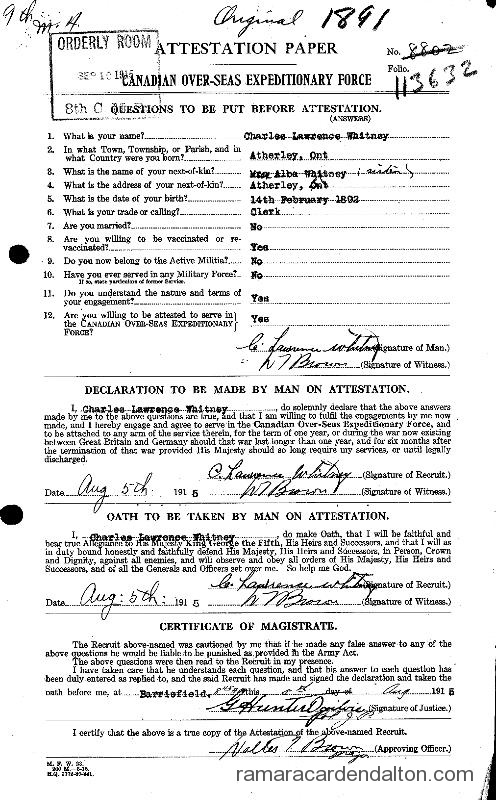 9th
M. 4.
Original 1891
ORDERLY ROOM
SEP 10 1915
8th C
ATTESTATION PAPER
No. 8802
Folio.
113632
CANADIAN OVER-SEAS EXPEDITIONARY FORCE
QUESTIONS TO BE PUT BEFORE ATTESTATION.
(ANSWERS)
1. What is your name? Charles Lawrence Whitney
2. In what Town, Township, or Parish, and in
what Country were you born? Atherley, Ont
3. What is the name of your next-of-kin? Miss Alba Whitney (sister)
4. What is the address of your next-of-kin? Atherley, Ont
5. What is the date of your birth? 14th February 1892
6. What is your trade or calling? Clerk
7. Are you married? No
8. Are you willing to be vaccinated or re-
vaccinated? Yes
9. Do you now belong to the Active Militia? No
10. Have you ever served in any Military Force? No
If so, state particulars of former Service.
11. Do you understand the nature and terms of
your engagement? Yes
12. Are you willing to be attested to serve in
the CANADIAN OVER-SEAS EXPEDITIONARY Yes
FORCE?
C. Lawrence Whitney (Signature of Man.)
W T Brown (Signature of Witness.)
DECLARATION TO BE MADE BY MAN ON ATTESTATION.
I, Charles Lawrence Whitney, do solemnly declare that the above answers
made by me to the above questions are true, and that I am willing to fulfil the engagements by me now
made, and I hereby engage and agree to serve in the Canadian Over-Seas Expeditionary Force, and
to be attached to any arm of the service therein, for the term of one year, or during the war now existing
between Great Britain and Germany should that war last longer than one year, and for six months after
the termination of that war provided His Majesty should so long require my services, or until legally
discharged.
C. Lawrence Whitney (Signature of Recruit.)
Date Aug 5th. 1915 W T Brown (Signature of Witness.)
OATH TO BE TAKEN BY MAN ON ATTESTATION.
I, Charles Lawrence Whitney, do make Oath, that I will be faithful and
bear true Allegiance to His Majesty King George the Fifth, His Heirs and Successors, and that I will as
in duty bound honestly and faithfully defend His Majesty, His Heirs and Successors, in Person, Crown
and Dignity, against all enemies, and will observe and obey all orders of His Majesty, His Heirs and
Successors, and of all the Generals and Officers set over me. So help me God.
C. Lawrence Whitney (Signature of Recruit.)
Date Aug: 5th: 1915 W T Brown (Signature of Witness.)
CERTIFICATE OF MAGISTRATE.
The Recruit above-named was cautioned by me that if he made any false answer to any of the
above questions he would be liable to be punished as provided in the Army Act.
The above questions were then read to the Recruit in my presence.
I have taken care that he understands each question, and that his answer to each question has
been duly entered as replied to, and the said Recruit has made and signed the declaration and taken the
oath before me, at Barriefield, this day of Aug 1915
G Hunter (Signature of Justice.)
I certify that the above is a true copy of the Attestation of the above-named Recruit.
Walter T Brown (Approving Officer.)
M. F. W. 23.
H.Q. 1772-39-841.
ramaracardendalton.com